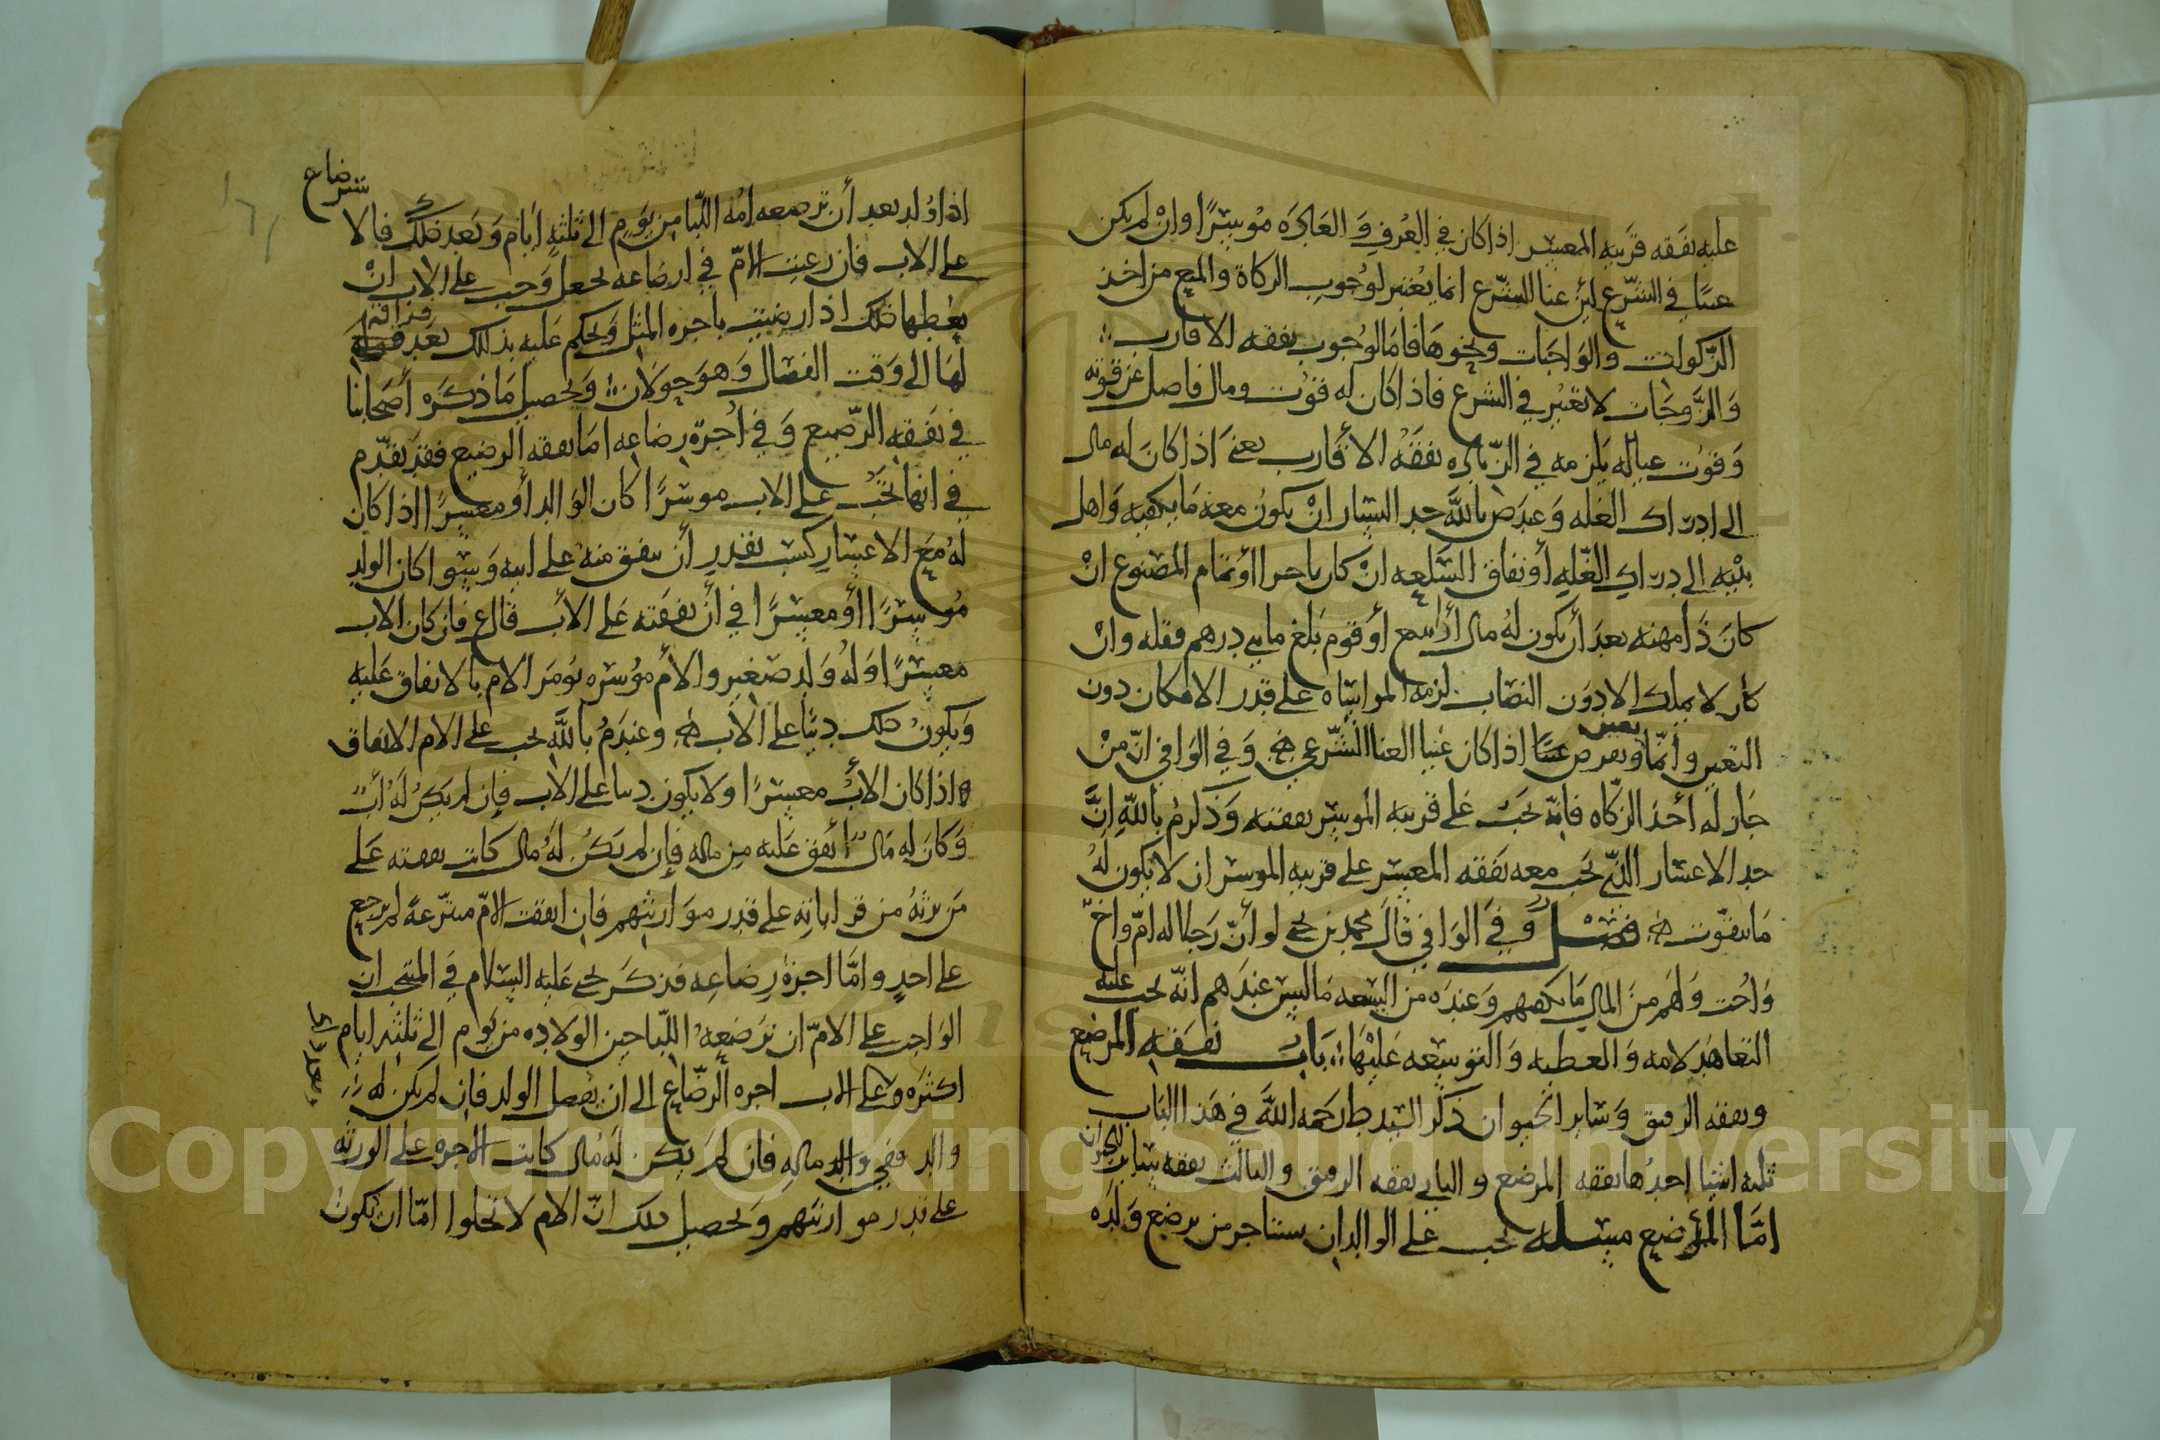 عليه نفقه قريبه المعسر اذا كان في العرف و العادة موسرًا وان لم يكن
غنيا في الشرع لأن غنا الشرع انما يعتبر لوجوب الزكاة والمنع من اخذ
الزكوات والواجبات ونحوها فاما لوجوب نفقه الاقارب
والزوجات لا تعتبر في الشرع فاذا كان له قوت ومال فاضل عن قوته
وقوت عياله يلزمه في الزيادة نفقة الأقارب يعني اذا كان له مال
الى ادراك الغله وعند ص بالله حد اليسار ان يكون معه ما يكفيه واهل
بيته الى ادراك الغله أو نفاق السلعه ان كان تاجرا أو تمام المصنوع ان
كان ذا مهنه بعد أن يكون له مال أو قوم بلغ مايتي درهم فقله وان
كان لا يملك الا دون النصاب لزمه المواساه على قدر الامكان دون
التعيين وانما يفرض اذا كان غنيا الغنا الشرعي وفي الوافي ان من
جاز له أخذ الزكاه فانه تجب على قريبه الموسر نفقته وذكر م بالله ان
حد الاعسار الذي تجب معه نفقه المعسر على قريبه الموسر ان لا يكون له
ما يتقوت فصل وفي الوافي قال محمد بن يحي لو أن رجلا له ام واخ
واخت ولهم من المال ما يكفيهم وعنده من السعه ما ليس عندهم انه تجب عليه
التعاهد لامه والعطيه والتوسعه عليها باب نفقه المرضع
ونفقه الرقيق وساير الحيوان ذكر السيد ط رحمه الله في هذا الباب
ثلثه اشيا احدها نفقه المرضع والثاني نفقه الرقيق والثالث نفقه ساير الحيوان
اما المرضع مسله تجب على الوالد ان يستاجر من يرضع ولده
اذا ولد بعد أن ترضعه امه اللبا من يوم الى ثلثه ايام وبعد ذلك فالاسترضاع
على الاب فان رغبت الام في ارضاعه بجعل وجب على الاب ان
يعطيها ذلك اذا رضيت باجره المثل ويحكم عليه بذلك بعد فراقه
لها الى وقت الفصال وهو حولان وتحصيل ما ذكره أصحابنا
في نفقه الرضيع وفي أجرة رضاعه اما نفقه الرضيع فقد تقدم
في انها تجب على الاب موسرًا كان الوالد أو معسرًا اذا كان
له مع الاعسار كسب يقدر أن ينفق منه على ابنه وسوا كان الولد
موسرًا أو معسرًا في أن نفقته على الأب قال ع فان كان الاب
معسرًا وله ولد صغير والأم موسره تومر الام بالانفاق عليه
ويكون ذلك دينا على الأب وعند م بالله تجب على الام الانفاق
اذا كان الأب معسرًا ولا يكون دينا على الأب فإن لم يكن له أب
وكان له مال أنفق عليه من ماله فإن لم يكن له مال كانت نفقته على
من يرثه من قراباته على قدر مواريثهم فان انفقت الام متبرعة لم يرجع
على احد واما اجرة رضاعه فذكر يحي عليه السلام في المنتخب ان
الواجب على الام ان ترضعه اللبا حين الولاده من يوم الى ثلثه ايام
اكثره وعلى الاب اجره الرضاع الى ان يفصل الولد فان لم يكن له
والد ففي ماله فان لم يكن له مال كانت الاجره على الورثه
على قدر مواريثهم وتحصيل ذلك ان الام لا تخلوا اما ان تكون
Copyright © King Saud University